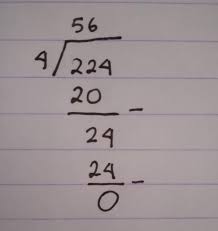 56
4 224
20 -
24
24 -
0